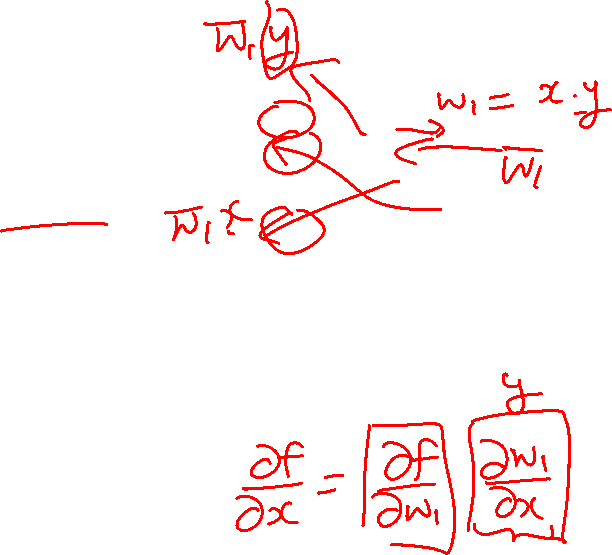 w̅₁ y
w₁ = x · y
w̅₁
w̅₁ x
y
∂f/∂x = ∂f/∂w₁ ∂w₁/∂x